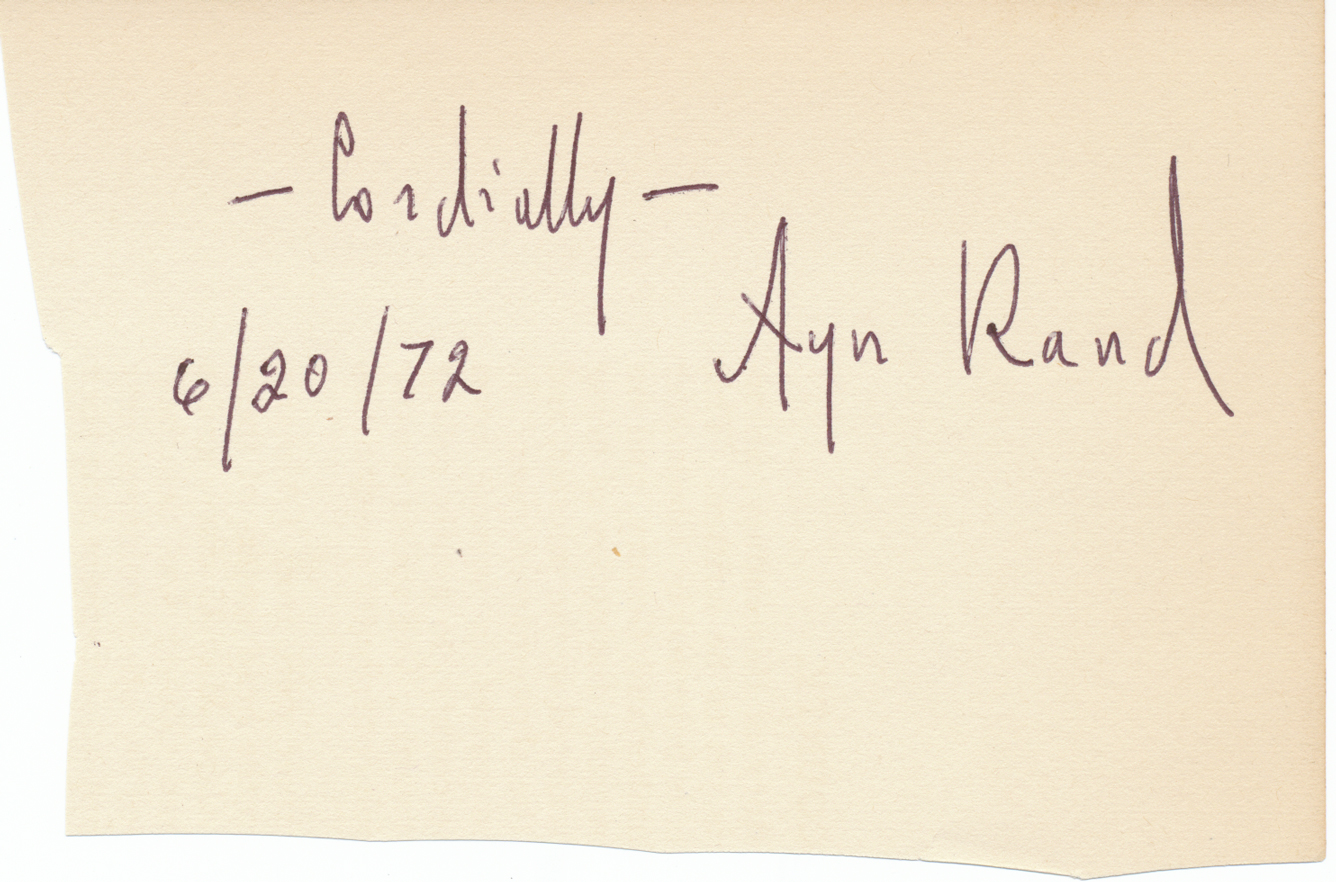 — Cordially —
Ayn Rand
6/20/72